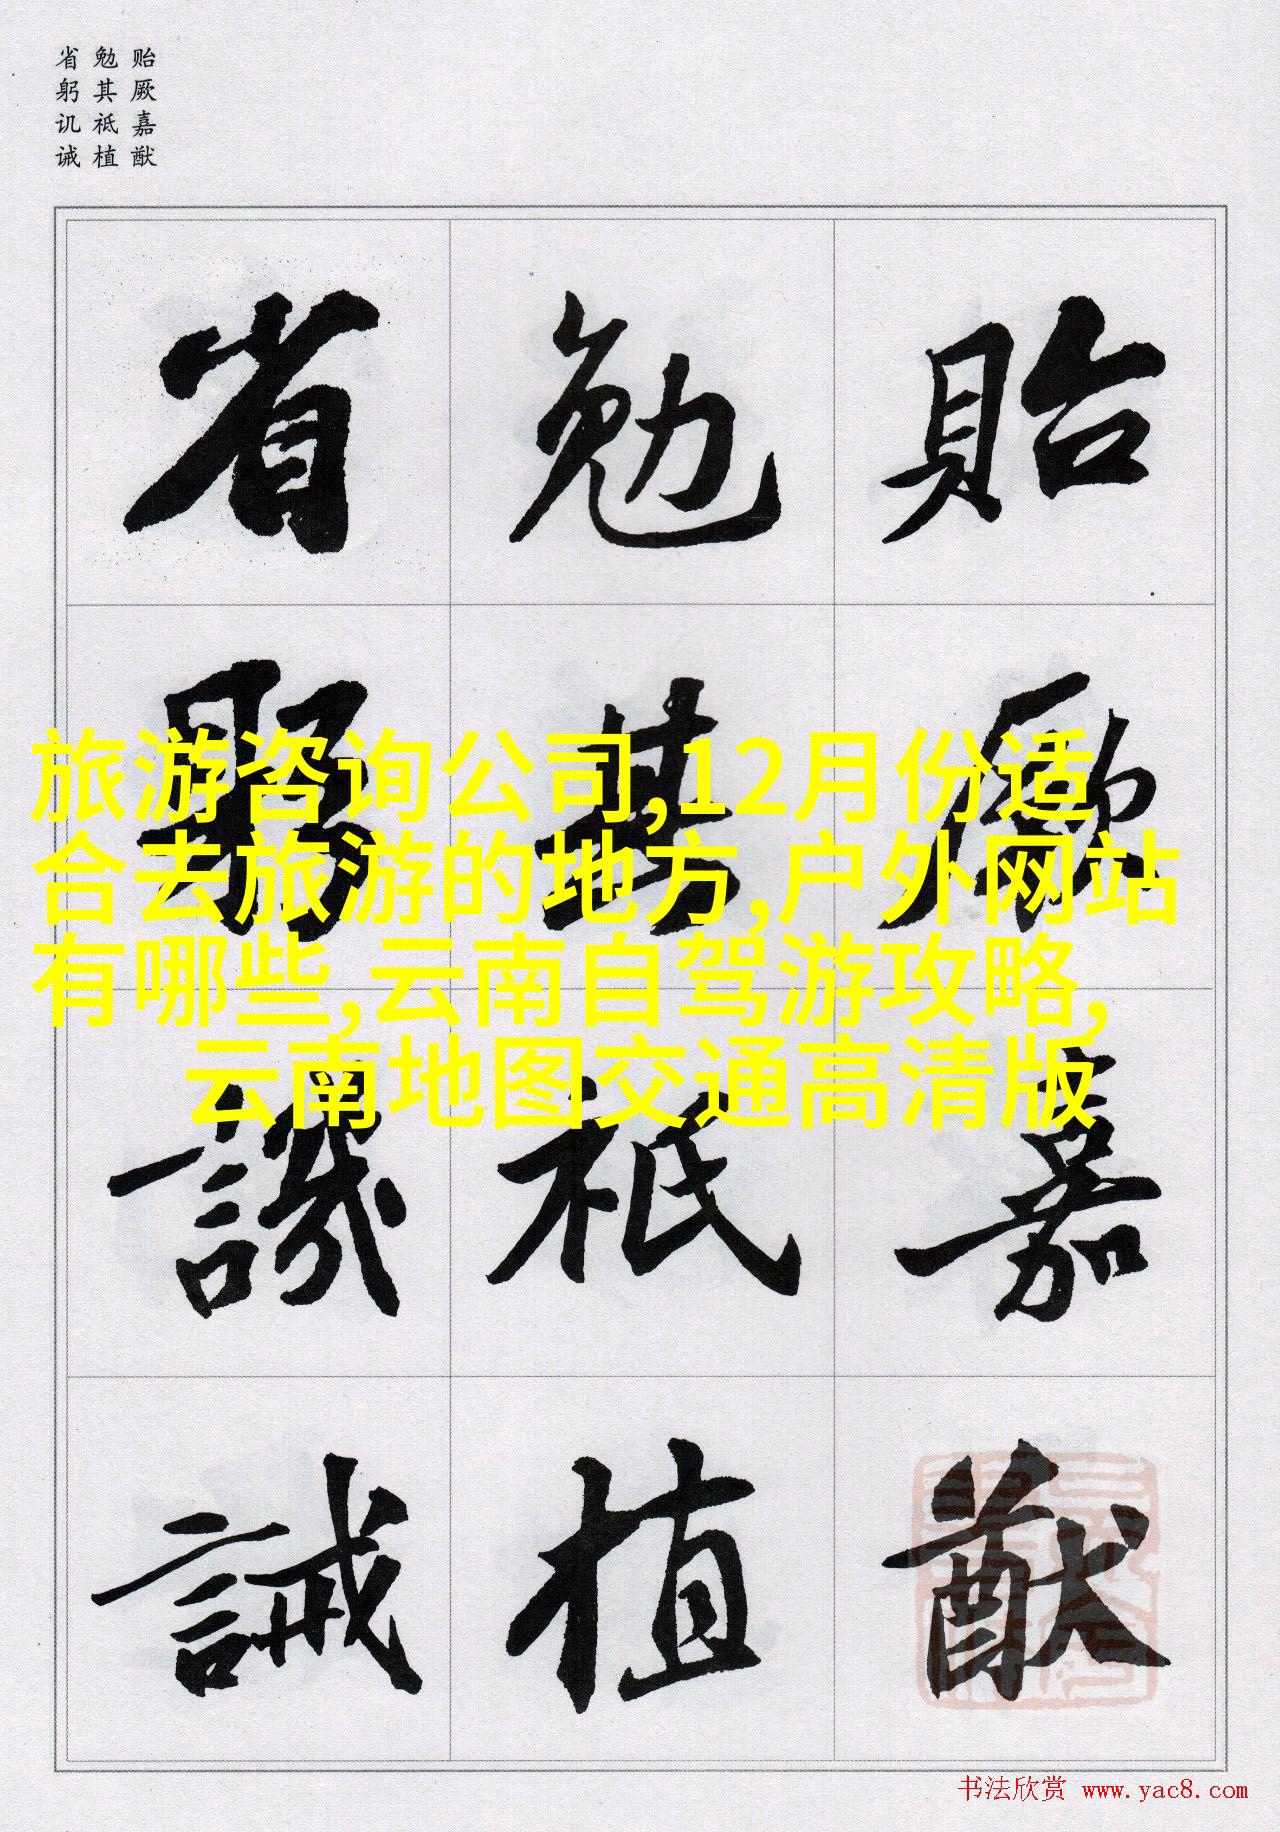 贻厥嘉猷
勉其祗植
省躬讥诫
貽厥嘉猷
勉其祗植
省躬譏誡
旅游咨询公司,12月份适
合去旅游的地方,户外网站
有哪些,云南自驾游攻略,
云南地图交通高清版
书法欣赏 www.yac8.com